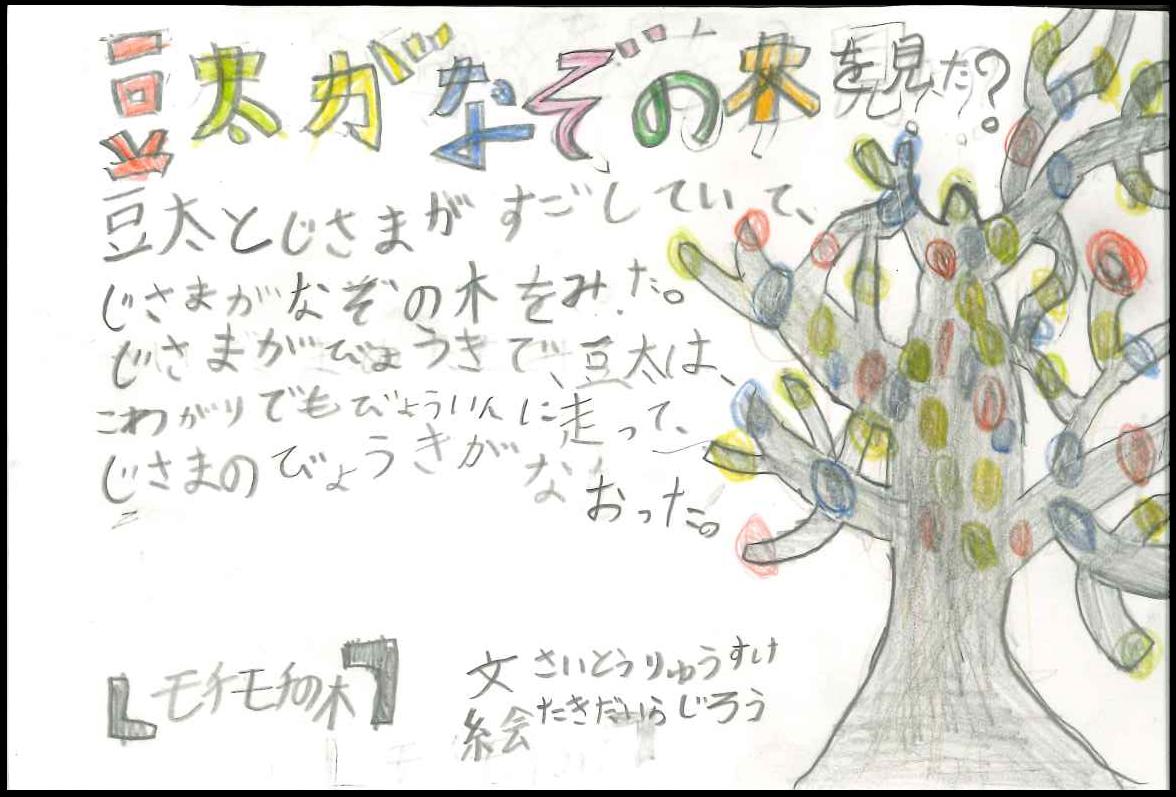 豆太がなぞの木を見た?
豆太とじさまがすごしていて、
じさまがなぞの木をみた。
じさまがびょうきで、豆太は、
こわがりでもびょういんに走って、
じさまのびょうきがなおった。
「モチモチの木」
文 さいとうりゅうすけ
絵 たきだいらじろう